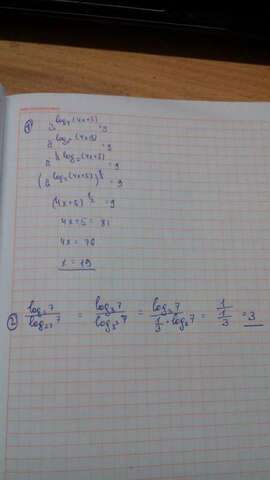 1) 3^{log₉(4x+5)} = 9
3^{log_{3²}(4x+5)} = 9
3^{½ log₃(4x+5)} = 9
(3^{log₃(4x+5)})^{½} = 9
(4x+5)^{½} = 9
4x+5 = 81
4x = 76
x = 19
2) log₃7 / log₂₇7 = log₃7 / log_{3³}7 = log₃7 / (1/3 · log₃7) = 1 / (1/3) = 3